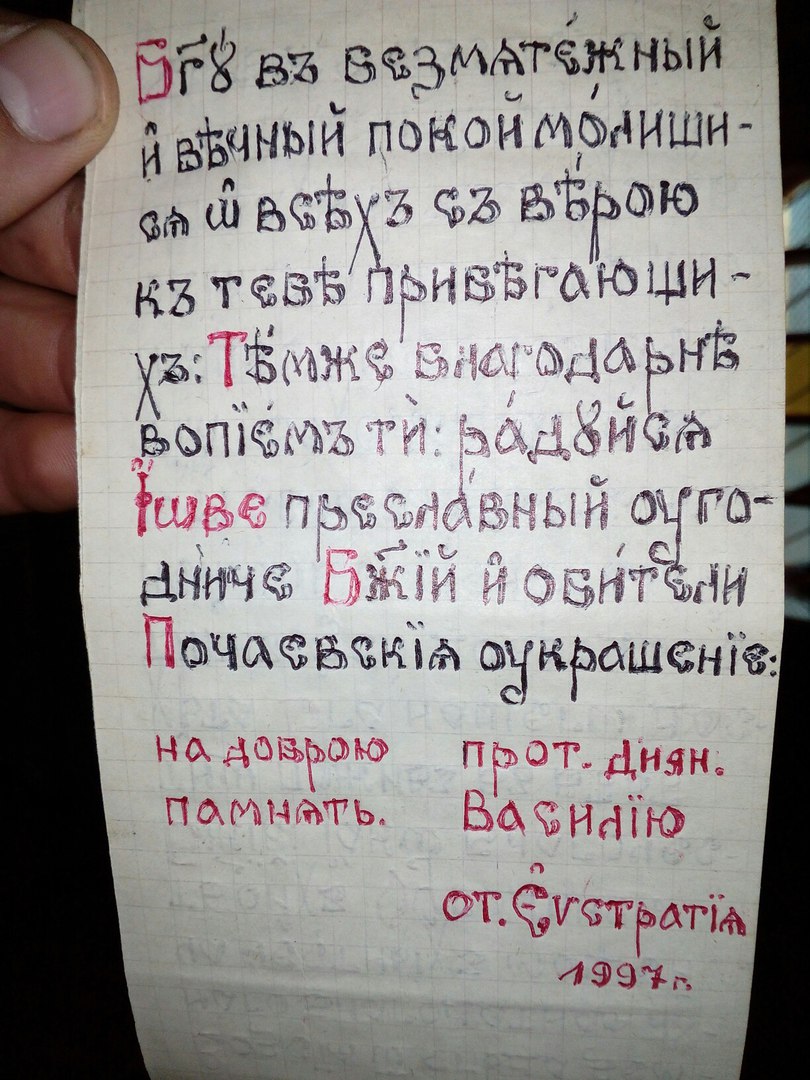 Бг҃ꙋ въ безмѧте́жный
и҆ вѣчный покой мо́лиши-
сѧ ѿ всѣхъ съ вѣ́рою
къ тебѣ прибѣгающи-
хъ: Тѣ́мже благода́рнѣ
вопїе́мъ тѝ: ра́дꙋйсѧ
І҆ѡве пресла́вный оуго-
дниче Бж҃їй и҆ оби́тели
Почаевскїѧ оукрашенїе:
на доброю прот. днян.
памнѧть. Василїю
от. Є҆ѵстратїѧ
1997 г.